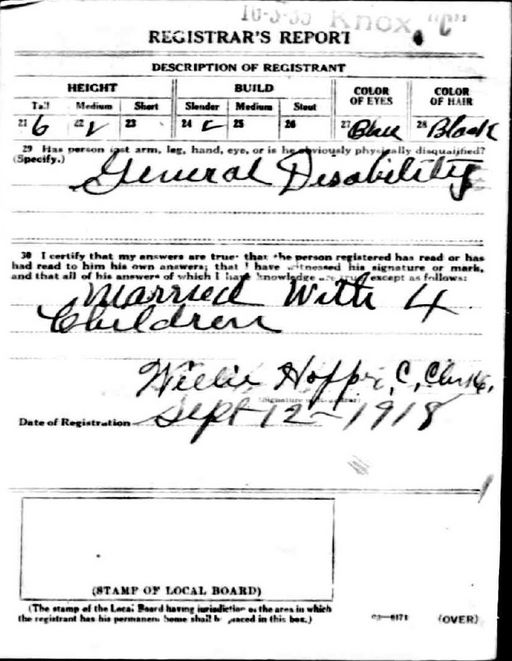 16-3-35 Knox "C"
REGISTRAR'S REPORT
DESCRIPTION OF REGISTRANT
HEIGHT BUILD COLOR OF EYES COLOR OF HAIR
Tall Medium Short Slender Medium Stout
21 6 22 23 24 25 26 27 Blue 28 Black
29 Has person lost arm, leg, hand, eye, or is he obviously physically disqualified?
(Specify.)
General Disability
30 I certify that my answers are true; that the person registered has read or has
had read to him his own answers; that I have witnessed his signature or mark,
and that all of his answers of which I have knowledge are true, except as follows:
Married With 4
Children
Willie Hopper, C, Clerk,
(Signature of Registrar)
Date of Registration Sept 12 - 1918
(STAMP OF LOCAL BOARD)
(The stamp of the Local Board having jurisdiction of the area in which
the registrant has his permanent home shall be placed in this box.)
03—6171 (OVER)